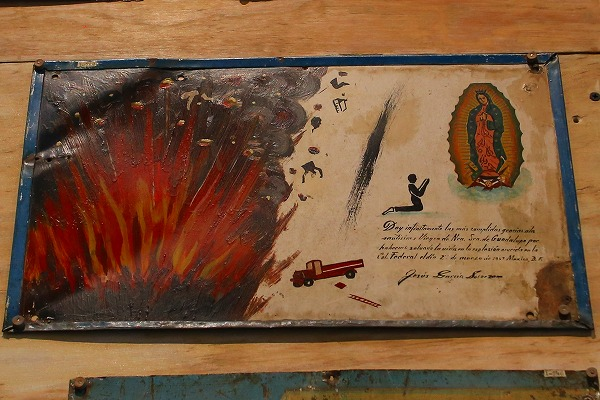 Doy infinitamente las más cumplidas gracias a la
santísima Virgen de Nra. Sra. de Guadalupe por
habernos salvado la vida en la explosión ocurrida en la
Col. Federal el día 2 de marzo de 1947 Mexico, D. F.
Jesús García